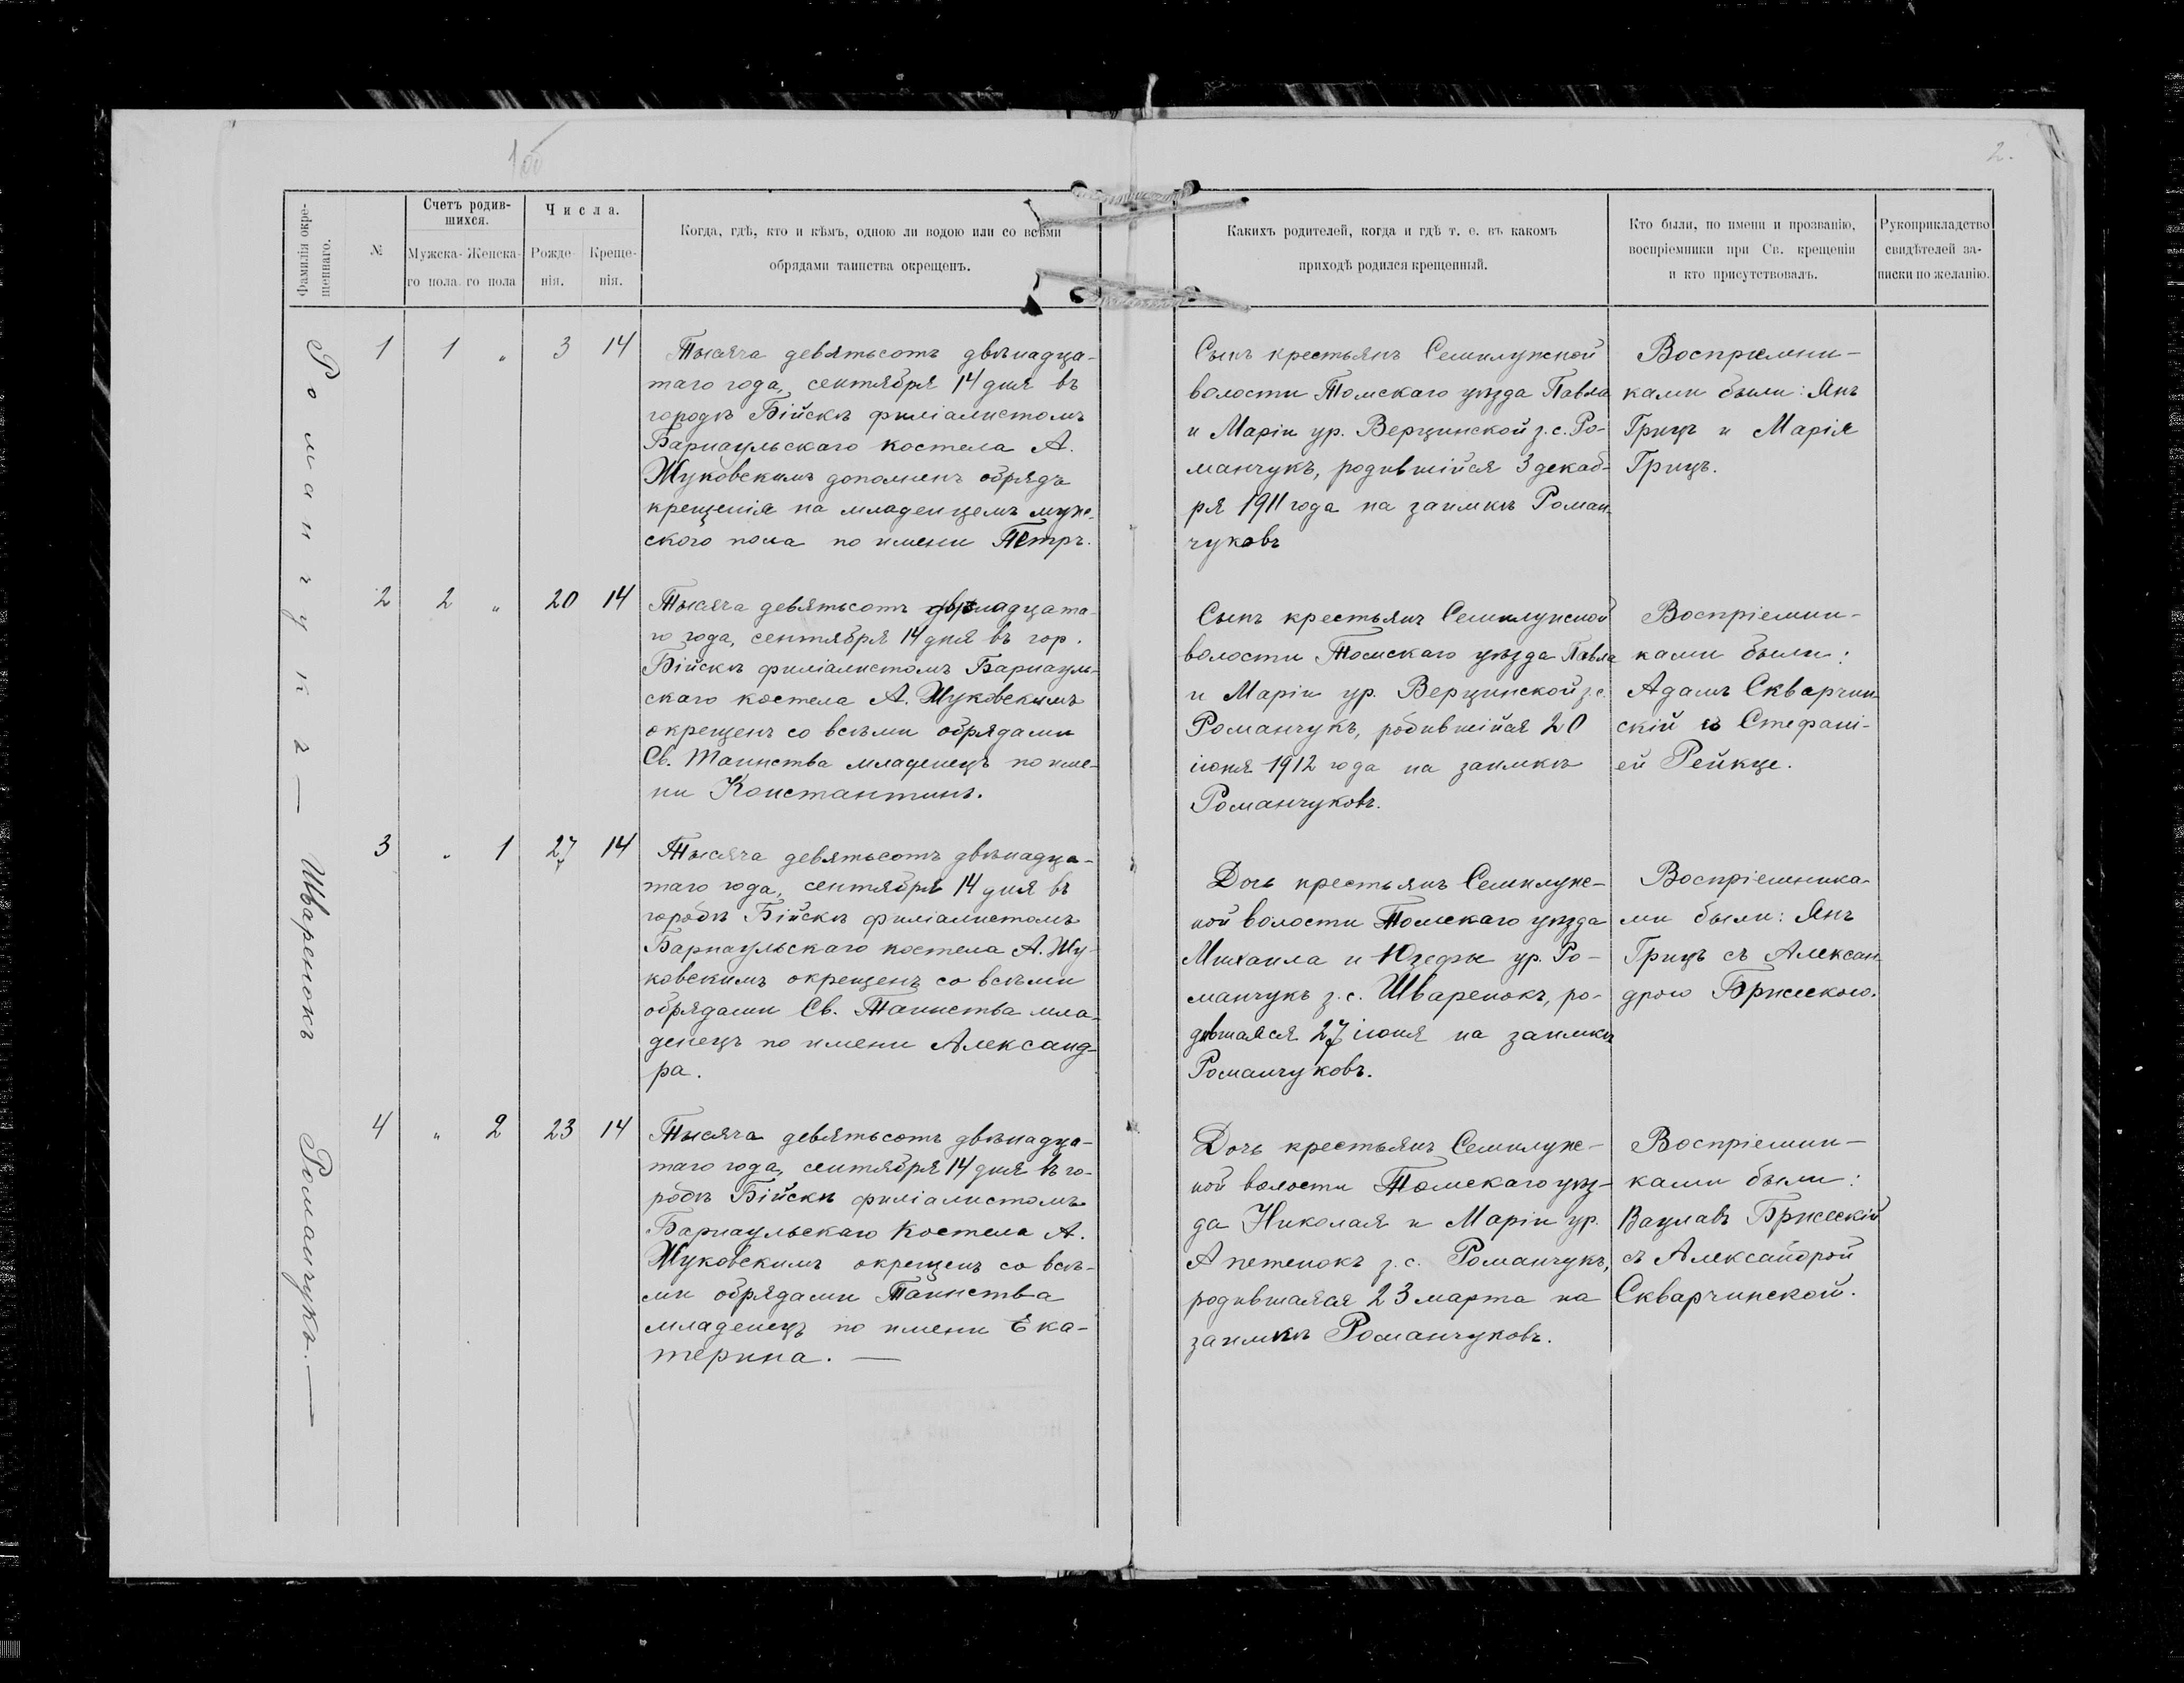 2.
Фамилія окре-
щеннаго.
№
Счетъ родив-
шихся.
Мужска-
го пола.
Женска-
го пола
Числа.
Рожде-
нія.
Креще-
нія.
Когда, гдѣ, кто и кѣмъ, одною ли водою или со всѣми
обрядами таинства окрещенъ.
Какихъ родителей, когда и гдѣ т. е. въ какомъ
приходѣ родился крещенный.
Кто были, по имени и прозванію,
воспріемники при Св. крещеніи
и кто присутствовалъ.
Рукоприкладство
свидѣтелей за-
писки по желанію.
Романчукъ — Шваренокъ Романчукъ. —
1 1 " 3 14
Тысяча девятьсотъ двѣнадца-
таго года, сентября 14 дня въ
городѣ Бійскѣ филіалистомъ
Барнаульскаго костела А.
Жуковскимъ дополненъ обрядъ
крещенія на младенцемъ муж-
ского пола по имени Петръ.
Сынъ крестьянъ Семилужской
волости Томскаго уѣзда Павла
и Маріи ур. Верцинской з. с. Ро-
манчукъ, родившійся 3 декаб-
ря 1911 года на заимкѣ Роман-
чуковъ
Воспріемни-
ками были: Янъ
Грицъ и Марія
Грицъ.
2 2 " 20 14
Тысяча девятьсотъ двѣнадцата-
го года, сентября 14 дня въ гор.
Бійскѣ филіалистомъ Барнауль-
скаго костела А. Жуковскимъ
окрещенъ со всѣми обрядами
Св. Таинства младенецъ по име-
ни Константинъ.
Сынъ крестьянъ Семилужской
волости Томскаго уѣзда Павла
и Маріи ур. Верцинской з. с.
Романчукъ, родившійся 20
іюня 1912 года на заимкѣ
Романчуковъ.
Воспріемни-
ками были:
Адамъ Скварчин-
скій съ Стефані-
ей Рейкце.
3 " 1 27 14
Тысяча девятьсотъ двѣнадца-
таго года, сентября 14 дня въ
городѣ Бійскѣ филіалистомъ
Барнаульскаго костела А. Жу-
ковскимъ окрещенъ со всѣми
обрядами Св. Таинства мла-
денецъ по имени Александ-
ра.
Дочь крестьянъ Семилуж-
ной волости Томскаго уѣзда
Михаила и Юзефы ур. Ро-
манчукъ з. с. Шваренокъ, ро-
дившаяся 27 іюня на заимкѣ
Романчуковъ.
Воспріемника-
ми были: Янъ
Грицъ съ Алексан-
дрою Брисскою.
4 " 2 23 14
Тысяча девятьсотъ двѣнадца-
таго года, сентября 14 дня въ го-
родѣ Бійскѣ филіалистомъ
Барнаульскаго Костела А.
Жуковскимъ окрещенъ со всѣ-
ми обрядами Таинства
младенецъ по имени Ека-
терина. —
Дочь крестьянъ Семилуж-
ной волости Томскаго уѣз-
да Николая и Маріи ур.
Апетенокъ з. с. Романчукъ,
родившаяся 23 марта на
заимкѣ Романчуковъ.
Воспріемни-
ками были:
Вацлавъ Брисскій
съ Александрой
Скварчинской.